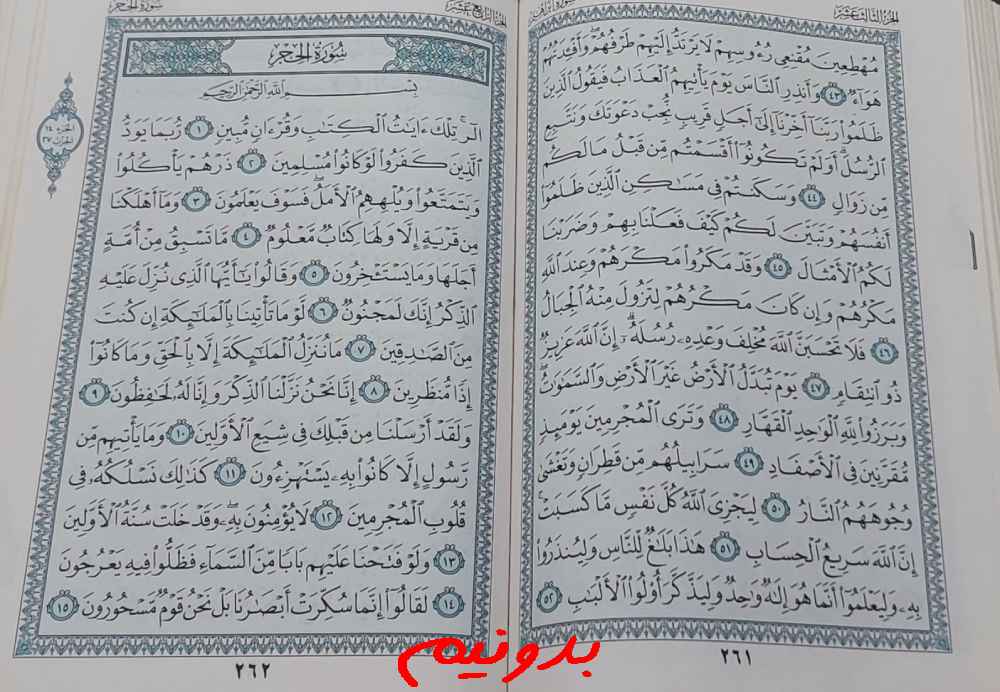 الجزء الثالث عشر
مُهْطِعِينَ مُقْنِعِى رُءُوسِهِمْ لَا يَرْتَدُّ إِلَيْهِمْ طَرْفُهُمْ ۖ وَأَفْـِٔدَتُهُمْ
هَوَآءٌ ٤٣ وَأَنذِرِ ٱلنَّاسَ يَوْمَ يَأْتِيهِمُ ٱلْعَذَابُ فَيَقُولُ ٱلَّذِينَ
ظَلَمُوا۟ رَبَّنَآ أَخِّرْنَآ إِلَىٰٓ أَجَلٍ قَرِيبٍ نُّجِبْ دَعْوَتَكَ وَنَتَّبِعِ
ٱلرُّسُلَ ۗ أَوَلَمْ تَكُونُوٓا۟ أَقْسَمْتُم مِّن قَبْلُ مَا لَكُم
مِّن زَوَالٍ ٤٤ وَسَكَنتُمْ فِى مَسَـٰكِنِ ٱلَّذِينَ ظَلَمُوٓا۟
أَنفُسَهُمْ وَتَبَيَّنَ لَكُمْ كَيْفَ فَعَلْنَا بِهِمْ وَضَرَبْنَا
لَكُمُ ٱلْأَمْثَالَ ٤٥ وَقَدْ مَكَرُوا۟ مَكْرَهُمْ وَعِندَ ٱللَّهِ
مَكْرُهُمْ وَإِن كَانَ مَكْرُهُمْ لِتَزُولَ مِنْهُ ٱلْجِبَالُ
٤٦ فَلَا تَحْسَبَنَّ ٱللَّهَ مُخْلِفَ وَعْدِهِۦ رُسُلَهُۥٓ ۗ إِنَّ ٱللَّهَ عَزِيزٌ
ذُو ٱنتِقَامٍ ٤٧ يَوْمَ تُبَدَّلُ ٱلْأَرْضُ غَيْرَ ٱلْأَرْضِ وَٱلسَّمَـٰوَٰتُ ۖ
وَبَرَزُوا۟ لِلَّهِ ٱلْوَٰحِدِ ٱلْقَهَّارِ ٤٨ وَتَرَى ٱلْمُجْرِمِينَ يَوْمَئِذٍ
مُّقَرَّنِينَ فِى ٱلْأَصْفَادِ ٤٩ سَرَابِيلُهُم مِّن قَطِرَانٍ وَتَغْشَىٰ
وُجُوهَهُمُ ٱلنَّارُ ٥٠ لِيَجْزِىَ ٱللَّهُ كُلَّ نَفْسٍ مَّا كَسَبَتْ ۚ
إِنَّ ٱللَّهَ سَرِيعُ ٱلْحِسَابِ ٥١ هَـٰذَا بَلَـٰغٌ لِّلنَّاسِ وَلِيُنذَرُوا۟
بِهِۦ وَلِيَعْلَمُوٓا۟ أَنَّمَا هُوَ إِلَـٰهٌ وَٰحِدٌ وَلِيَذَّكَّرَ أُو۟لُوا۟ ٱلْأَلْبَـٰبِ ٥٢
٢٦١
الجزء الرابع عشر
سورة الحجر
سُورَةُ الحِجْرِ
بِسْمِ ٱللَّهِ ٱلرَّحْمَـٰنِ ٱلرَّحِيمِ
الٓر ۚ تِلْكَ ءَايَـٰتُ ٱلْكِتَـٰبِ وَقُرْءَانٍ مُّبِينٍ ١ رُّبَمَا يَوَدُّ
ٱلَّذِينَ كَفَرُوا۟ لَوْ كَانُوا۟ مُسْلِمِينَ ٢ ذَرْهُمْ يَأْكُلُوا۟
وَيَتَمَتَّعُوا۟ وَيُلْهِهِمُ ٱلْأَمَلُ ۖ فَسَوْفَ يَعْلَمُونَ ٣ وَمَآ أَهْلَكْنَا
مِن قَرْيَةٍ إِلَّا وَلَهَا كِتَابٌ مَّعْلُومٌ ٤ مَّا تَسْبِقُ مِنْ أُمَّةٍ
أَجَلَهَا وَمَا يَسْتَـْٔخِرُونَ ٥ وَقَالُوا۟ يَـٰٓأَيُّهَا ٱلَّذِى نُزِّلَ عَلَيْهِ
ٱلذِّكْرُ إِنَّكَ لَمَجْنُونٌ ٦ لَّوْ مَا تَأْتِينَا بِٱلْمَلَـٰٓئِكَةِ إِن كُنتَ
مِنَ ٱلصَّـٰدِقِينَ ٧ مَا نُنَزِّلُ ٱلْمَلَـٰٓئِكَةَ إِلَّا بِٱلْحَقِّ وَمَا كَانُوٓا۟
إِذًا مُّنظَرِينَ ٨ إِنَّا نَحْنُ نَزَّلْنَا ٱلذِّكْرَ وَإِنَّا لَهُۥ لَحَـٰفِظُونَ ٩
وَلَقَدْ أَرْسَلْنَا مِن قَبْلِكَ فِى شِيَعِ ٱلْأَوَّلِينَ ١٠ وَمَا يَأْتِيهِم مِّن
رَّسُولٍ إِلَّا كَانُوا۟ بِهِۦ يَسْتَهْزِءُونَ ١١ كَذَٰلِكَ نَسْلُكُهُۥ فِى
قُلُوبِ ٱلْمُجْرِمِينَ ١٢ لَا يُؤْمِنُونَ بِهِۦ ۖ وَقَدْ خَلَتْ سُنَّةُ ٱلْأَوَّلِينَ
١٣ وَلَوْ فَتَحْنَا عَلَيْهِم بَابًا مِّنَ ٱلسَّمَآءِ فَظَلُّوا۟ فِيهِ يَعْرُجُونَ
١٤ لَقَالُوٓا۟ إِنَّمَا سُكِّرَتْ أَبْصَـٰرُنَا بَلْ نَحْنُ قَوْمٌ مَّسْحُورُونَ ١٥
الجزء ١٤
الحزب ٢٧
٢٦٢
بدونیم